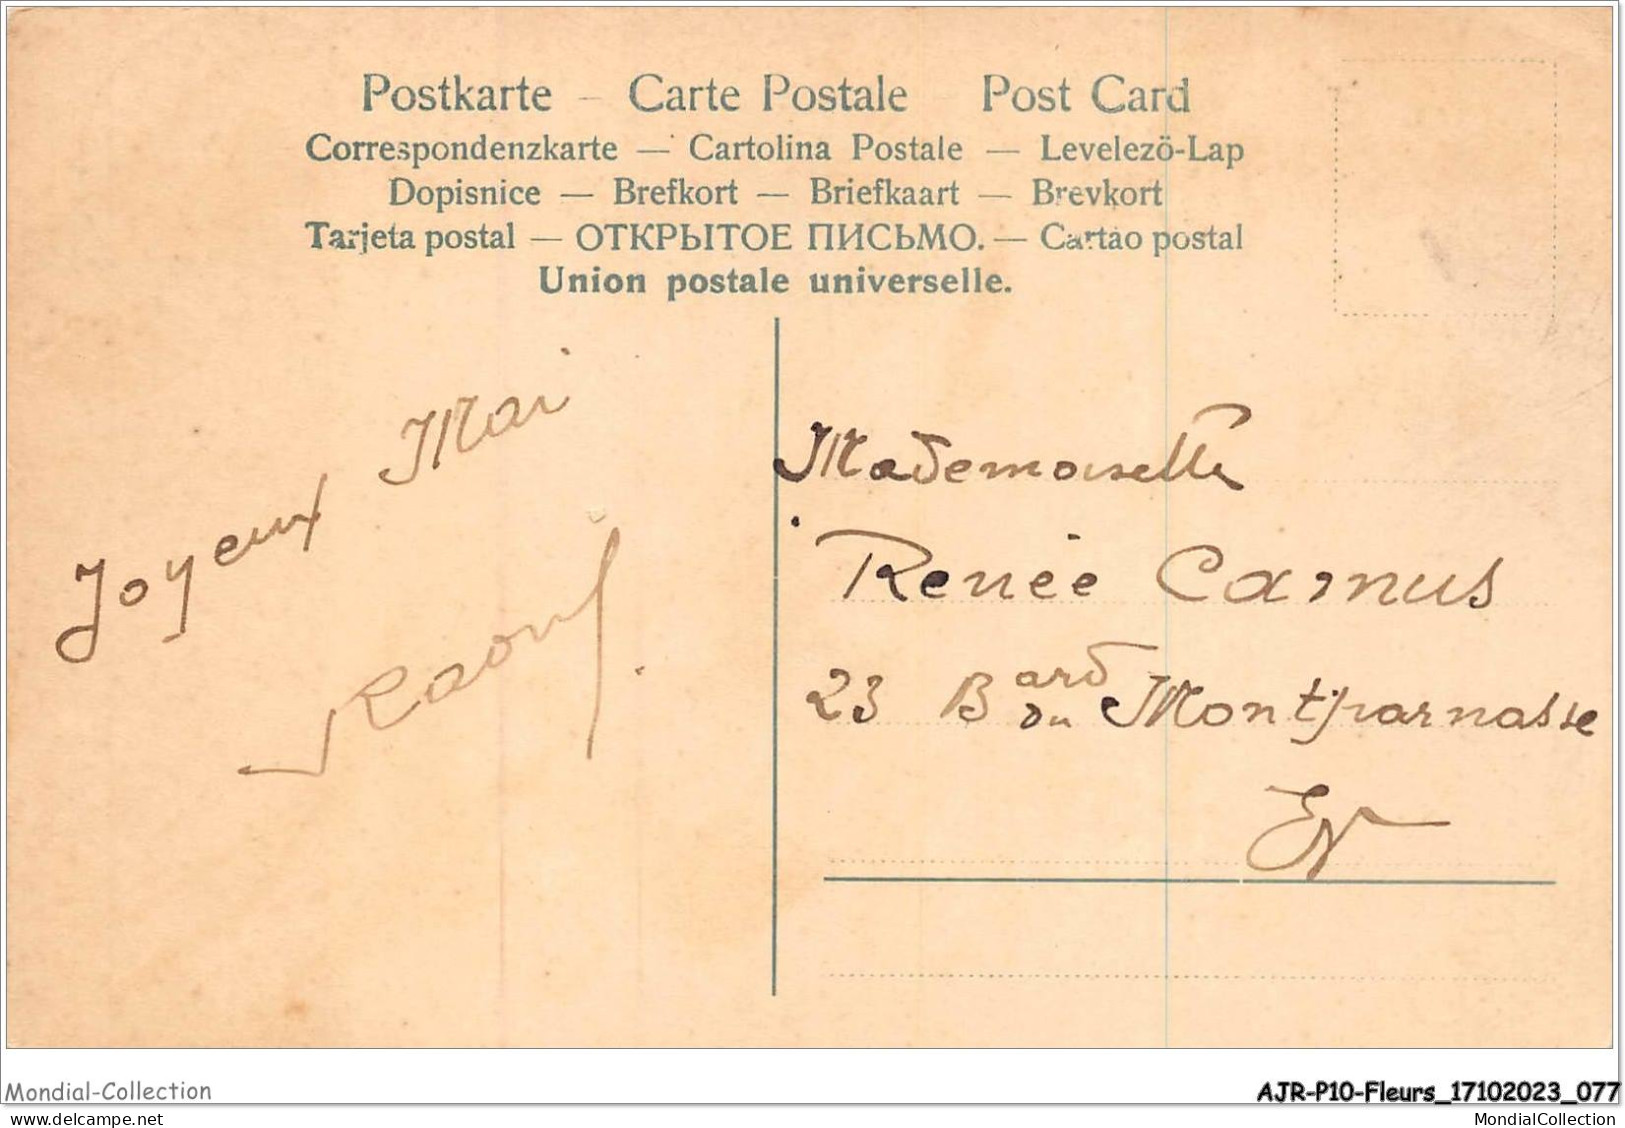 Postkarte – Carte Postale Post Card
Correspondenzkarte — Cartolina Postale — Levelezö-Lap
Dopisnice — Brefkort — Briefkaart — Brevkort
Tarjeta postal — ОТКРЫТОЕ ПИСЬМО. — Cartao postal
Union postale universelle.
Joyeux Mai
Raoul.
Mademoiselle
Renée Camus
23 Bard du Montparnasse
Mondial-Collection
AJR-P10-Fleurs_17102023_077
MondialCollection